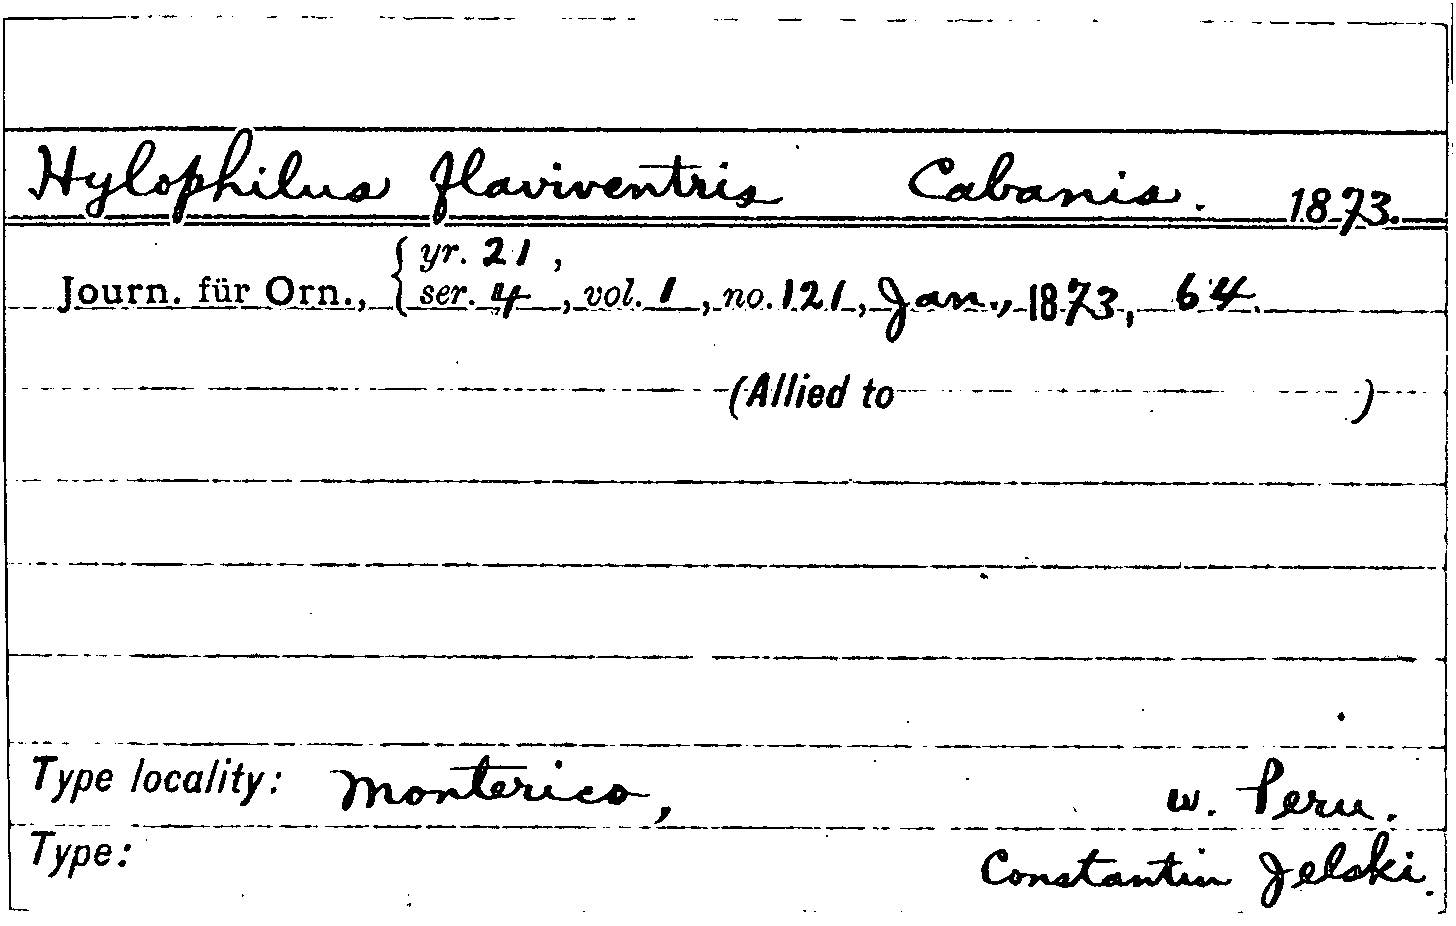 Hylophilus flaviventris Cabanis. 1873.
Journ. für Orn., { yr. 21 ,
ser. 4 , vol. 1 , no. 121 , Jan., 1873, 64.
(Allied to )
Type locality: Monterico, w. Peru.
Type: Constantin Jelski.